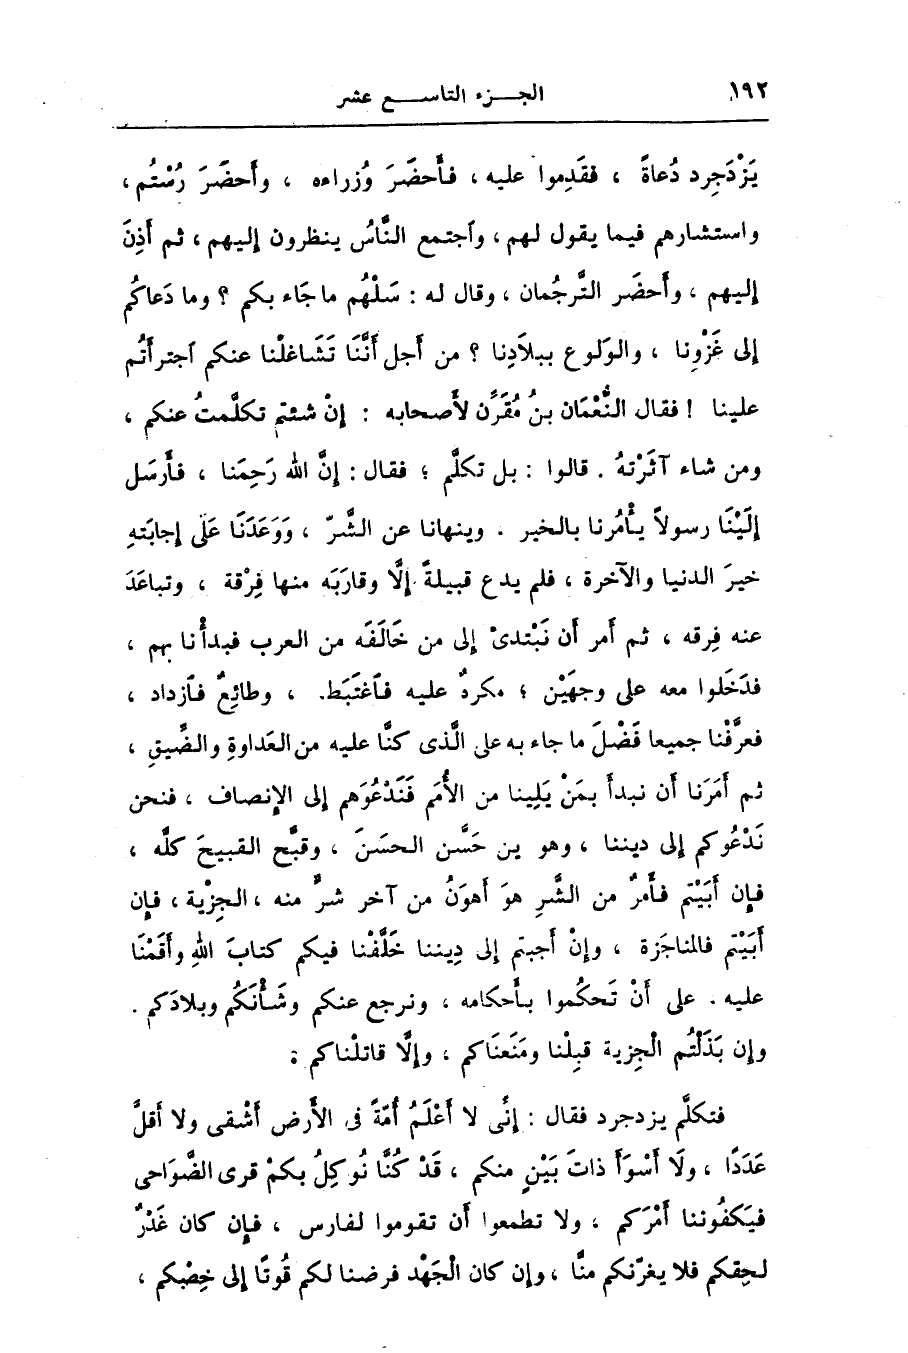 ١٩٢
الجـــزء التاســـع عشر
يَزْدَجِرد دُعاةً ، فقَدِموا عليه ، فأَحضَرَ وُزراءه ، وأَحضَرَ رُسْتُم ،
واستشارهم فيما يقول لهم ، واَجتمع النَّاسُ ينظرون إليهم ، ثم أَذِنَ
إليهم ، وأَحضَر التَّرجُمان ، وقال له : سَلْهُم ما جَاء بكم ؟ وما دَعاكُم
إلى غَزْوِنا ، والوَلوع ببلاَدِنا ؟ من أَجل أَنَّنَا تَشَاغلْنا عنكم اَجترأتُم
علينا ! فقال النُّعْمَان بنُ مُقَرَّن لأَصحابه : إنْ شئتم تكلَّمتُ عنكم ،
ومن شاء آثَرْتهُ . قالوا : بل تكلَّم ؛ فقال : إنَّ الله رَحِمَنا ، فأَرسَل
إلَيْنَا رسولاً يأْمُرنا بالخير . وينهانا عن الشَّرّ ، وَوَعَدَنَا عَلَى إجابَتهِ
خيرَ الدنيا والآخرة ، فلم يدع قبيلةً إلَّا وقارَبَه منها فِرْقة ، وتباعَدَ
عنه فِرقه ، ثم أَمر أَن نَبْتدئْ إلى من خَالَفَه من العرب فبدأْنا بهم ،
فدَخَلوا معه على وجهَيْن ؛ مكرهٌ عليه فاَغتَبَط. ، وطائِعٌ فاَزداد ،
فعرَّفْنا جميعا فَضْلَ ما جاء به على الَّذى كنَّا عليه من العَداوةِ والضَّيقِ ،
ثم أَمَرَنا أَن نبدأَ بمَنْ يَلِينا من الأُمَم فَنَدْعُوَهم إلى الإنصاف ، فنحن
نَدْعُوكم إلى ديننا ، وهو ين حَسَّن الحسَنَ ، وقبَّح القبيحَ كلَّه ،
فإن أَبَيْتم فأَمرٌ من الشَّرِ هوَ أَهوَنُ من آخر شرٌّ منه ، الجِزْية ، فإن
أَبَيْتم فالمناجَزة ، وإنْ أجبتم إلى دِيننا خَلَّفْنا فيكم كتابَ اللهِ وأَقَمْنَا
عليه . على أَنْ تَحكُموا بأَحكامه ، ونرجع عنكم وشَأْنَكُم وبلادَكم .
وإن بَذَلْتُم الْجِزية قبِلْنا ومَنَعنَاكم ، وإلَّا قاتلْناكم ؛
فتكلَّم يزدجرد فقال : إنِّى لا أَعْلَمُ أُمَّةً فى الأَرض أَشْقى ولا أَقلَّ
عَدَدًا ، ولَا أَسْوَأَ ذاتَ بَيْنٍ منكم ، قَدْ كُنَّا نُوكِلُ بكمْ قرى الضَّوَاحى
فيَكفُوننا أَمْرَكم ، ولا تطمعوا أَن تقوموا لفارس ، فإن كان غَدْرٌ
لحِقكم فلا يغرّنكم منَّا ، وإن كان الْجَهْد فرضنا لكم قُوتًا إلى خِصْبكم ،